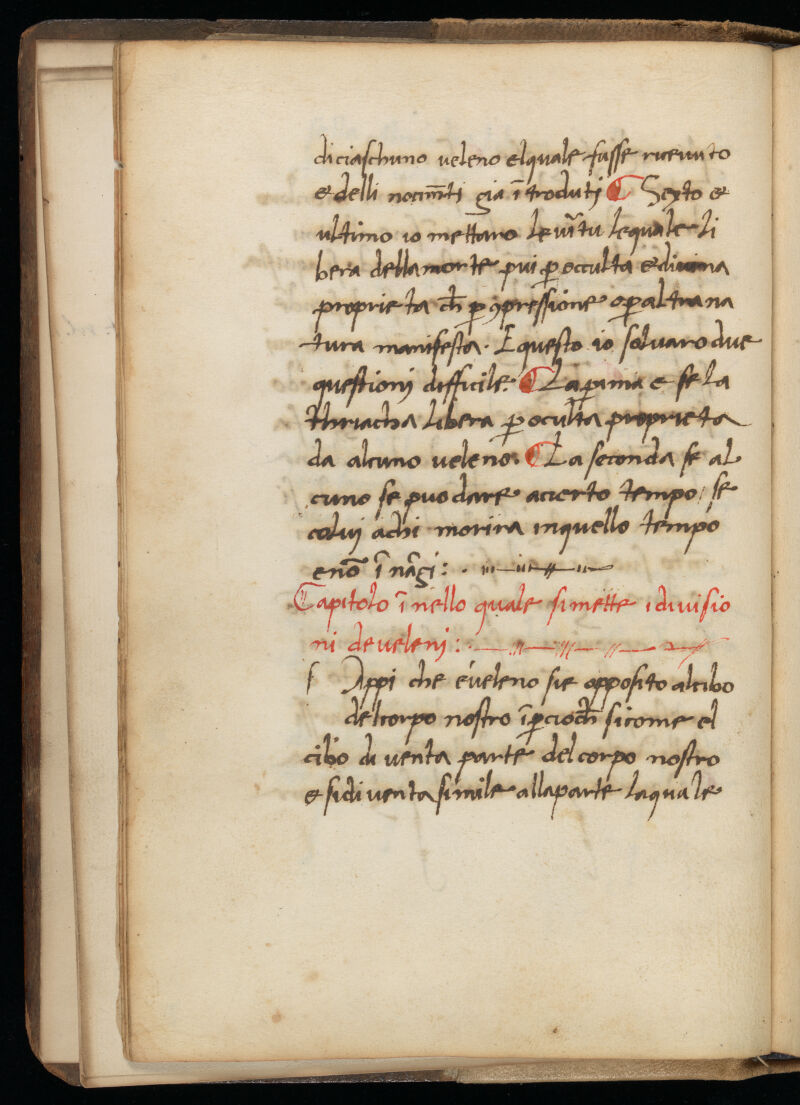 diciaschuno veleno elquale fusse riceuuto
& delli nocim̅ti gia ĩtroduti ¶ Sexto &
ultimo io mettaro le vir̃tu lequale li
bera della morte pui ꝑ occulta & diuina
proprieta ch̅ ꝑ ꝯpressione o ꝑ altra na
tura manifesta. E questo io soluaro due
questioni difficile: ¶ La ꝑama e se la
thriacha libera ꝑ oculta proprieta
da alcuno veleno. ¶ La seconda se al
cuno se puo dare acierto tempo / se
colui achi morira inquello tempo
e nõ ĩ nãgi:.
Capitolo ĩnello quale simette i diuisio
ni deueleni:.
s Appi che e´ ueleno sie opposito alcibo
delcorpo nostro ĩꝑcioch̅ sicome el
cibo diuenta parte del corpo nostro
e sidiuenta simile allaparte laquale